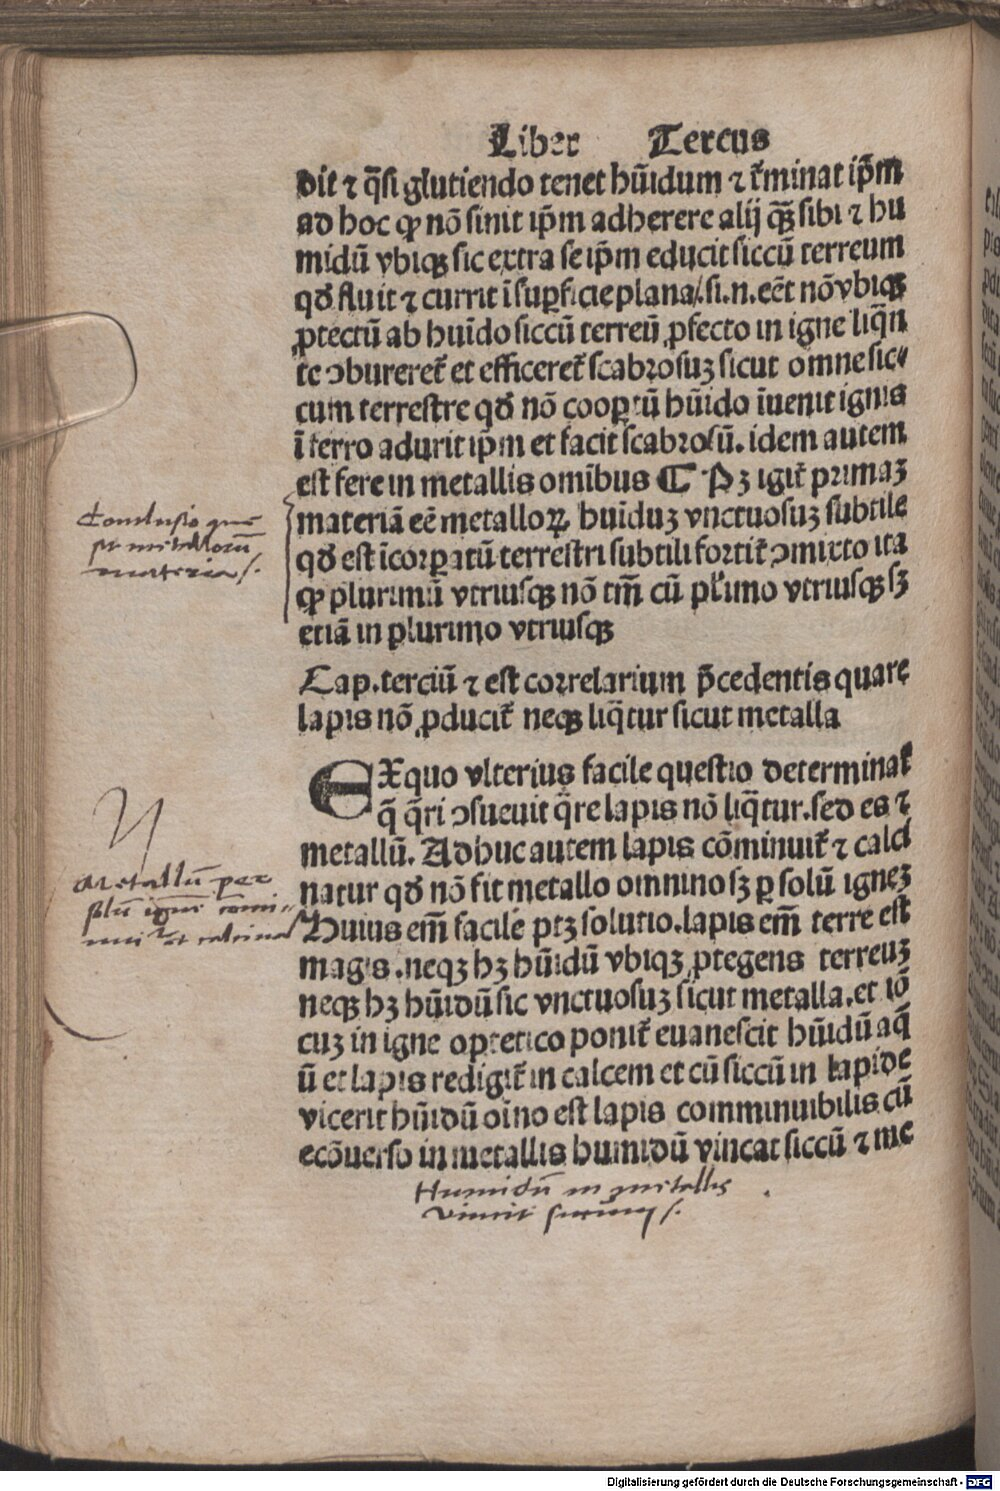 Liber Tercius
dit ⁊ q̄si glutiendo tenet hūidum ⁊ t̄minat ip̄m
ad hoc ꝙ nō sinit ip̄m adherere alij qꝫ̄ sibi ⁊ hu
midū vbiqꝫ sic extra se ip̄m educit siccū terreum
qđ fluit ⁊ currit ī suꝑficie plana/. si.n.eēt nō vbiqꝫ
ꝓtectū ab huīdo siccū terreū ꝓfecto in igne liq̄n
te ↄbureret̄ et efficeret̄ scabrosuꝫ sicut omne sic⸗
cum terrestre qđ nō cooꝑtū hūido īuenit ignis
ī ferro adurit ip̄m et facit scabrosū. idem autem
est fere in metallis omībus ¶ Pꝫ igit̄ primaꝫ
materiā eē metalloꝝ huīduꝫ vnctuosuꝫ subtile
qđ est īcorꝑatū terrestri subtili fortit̄ ↄmixto ita
ꝙ plurimū vtriusqꝫ nō tm̄ cū pl̄imo vtriusqꝫ sꝫ
etiā in plurimo vtriusqꝫ
Cap.terciū ⁊ est correlarium p̄cedentis quare
lapis nō ꝓducit̄ neqꝫ liq̄tur sicut metalla
EXquo vlterius facile questio determinat̄
q̄ q̄ri ↄsueuit q̄re lapis nō liq̄tur.sed es ⁊
metallū. Adhuc autem lapis cōminuit̄ ⁊ calci
natur qđ nō fit metallo omnino sꝫ ꝑ solū igneꝫ
Huius em̄ facile ptꝫ solutio.lapis em̄ terre est
magis .neqꝫ hꝫ hūidū vbiqꝫ ꝓtegens terreuꝫ
neqꝫ hꝫ hūidū sic vnctuosuꝫ sicut metalla.et iō
cuꝫ in igne optetico ponit̄ euanescit hūidū aq̄
ū et lapis redigit̄ in calcem et cū siccū in lapide
vicerit hūidū oīno est lapis comminuibilis cū
ecōuerso in metallis humidū vincat siccū ⁊ me
Conclusio que
sit metallorū
materia/.
Metallū per
solū ignē comi⸗
Humidū in metallis
vincit siccum/.
Digitalisierung gefördert durch die Deutsche Forschungsgemeinschaft - DFG